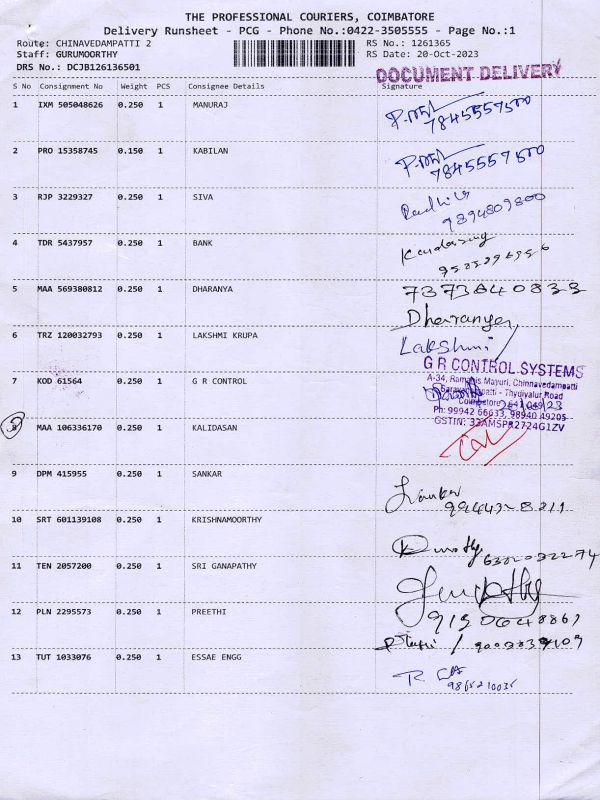 THE PROFESSIONAL COURIERS, COIMBATORE
Delivery Runsheet - PCG - Phone No.:0422-3505555 - Page No.:1
Route: CHINAVEDAMPATTI 2 RS No.: 1261365
Staff: GURUMOORTHY RS Date: 20-Oct-2023
DRS No.: DCJB126136501
DOCUMENT DELIVERY
S No Consignment No Weight PCS Consignee Details Signature
1 IXM 505048626 0.250 1 MANURAJ
7845557500
2 PRO 15358745 0.150 1 KABILAN
7845557500
3 RJP 3229327 0.250 1 SIVA
9894809800
4 TDR 5437957 0.250 1 BANK
5 MAA 569380812 0.250 1 DHARANYA 7373640833
Dharanya
6 TRZ 120032793 0.250 1 LAKSHMI KRUPA Lakshmi
G R CONTROL SYSTEMS
7 KOD 61564 0.250 1 G R CONTROL A-34, Mayuri, Chinnavedampatti
Thudiyalur Road
Coimbatore
Ph: 99942 66633, 98940 49205
GSTIN: 33AMSPR2724G1ZV
MAA 106336170 0.250 1 KALIDASAN
9 DPM 415955 0.250 1 SANKAR
10 SRT 601139108 0.250 1 KRISHNAMOORTHY
11 TEN 2057200 0.250 1 SRI GANAPATHY
12 PLN 2295573 0.250 1 PREETHI
13 TUT 1033076 0.250 1 ESSAE ENGG